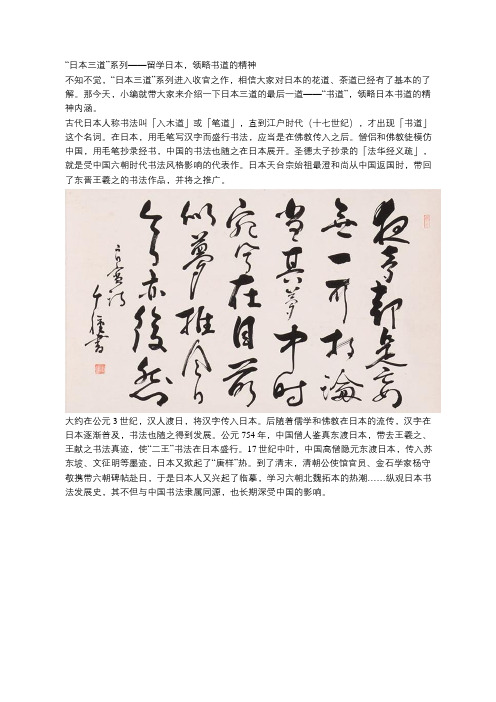 “日本三道”系列——留学日本，领略书道的精神
不知不觉，“日本三道”系列进入收官之作，相信大家对日本的花道、茶道已经有了基本的了
解。那今天，小编就带大家来介绍一下日本三道的最后一道——“书道”，领略日本书道的精
神内涵。
古代日本人称书法叫「入木道」或「笔道」，直到江户时代（十七世纪），才出现「书道」
这个名词。在日本，用毛笔写汉字而盛行书法，应当是在佛教传入之后。僧侣和佛教徒模仿
中国，用毛笔抄录经书，中国的书法也随之在日本展开。圣德太子抄录的「法华经义疏」，
就是受中国六朝时代书法风格影响的代表作。日本天台宗始祖最澄和尚从中国返国时，带回
了东晋王羲之的书法作品，并将之推广。
夜夢都是妄
無一可持論
當其夢中時
宛兮在目前
以夢推今日
今日亦復然
良寬詩
大约在公元 3 世纪，汉人渡日，将汉字传入日本。后随着儒学和佛教在日本的流传，汉字在
日本逐渐普及，书法也随之得到发展。公元 754 年，中国僧人鉴真东渡日本，带去王羲之、
王献之书法真迹，使“二王”书法在日本盛行。17 世纪中叶，中国高僧隐元东渡日本，传入苏
东坡、文征明等墨迹，日本又掀起了“唐样”热。到了清末，清朝公使馆官员、金石学家杨守
敬携带六朝碑帖赴日，于是日本人又兴起了临摹，学习六朝北魏拓本的热潮……纵观日本书
法发展史，其不但与中国书法隶属同源，也长期深受中国的影响。